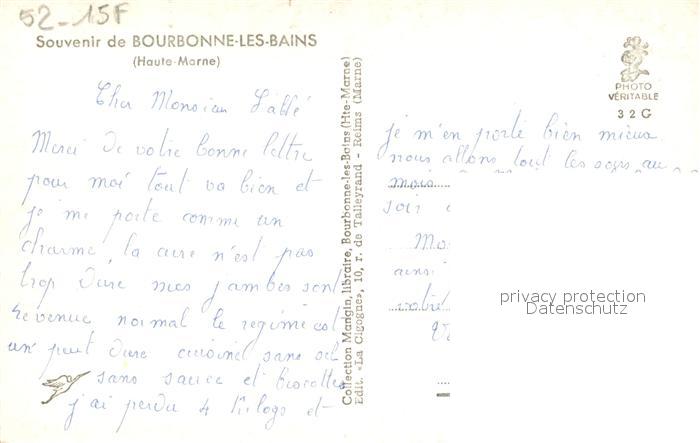 52-15F
Souvenir de BOURBONNE-LES-BAINS
(Haute-Marne)
Cher Monsieur l'abbé
Merci de votre bonne lettre
pour moi tout va bien et
je me porte comme un
charme, la cure n'est pas
trop dure mes jambes sont
revenue normal le regime est
un peut dure cuisine sans sel
sans sauce et biscottes
j'ai perdu 4 kilogs et
Collection Mangin, libraire, Bourbonne-les-Bains (Hte-Marne)
Edit. «La Cigogne», 10, r. de Talleyrand - Reims (Marne)
PHOTO
VÉRITABLE
32 G
je m'en porte bien mieux
nous allons tout les soirs au
mois
soir
ainsi
privacy protection
Datenschutz